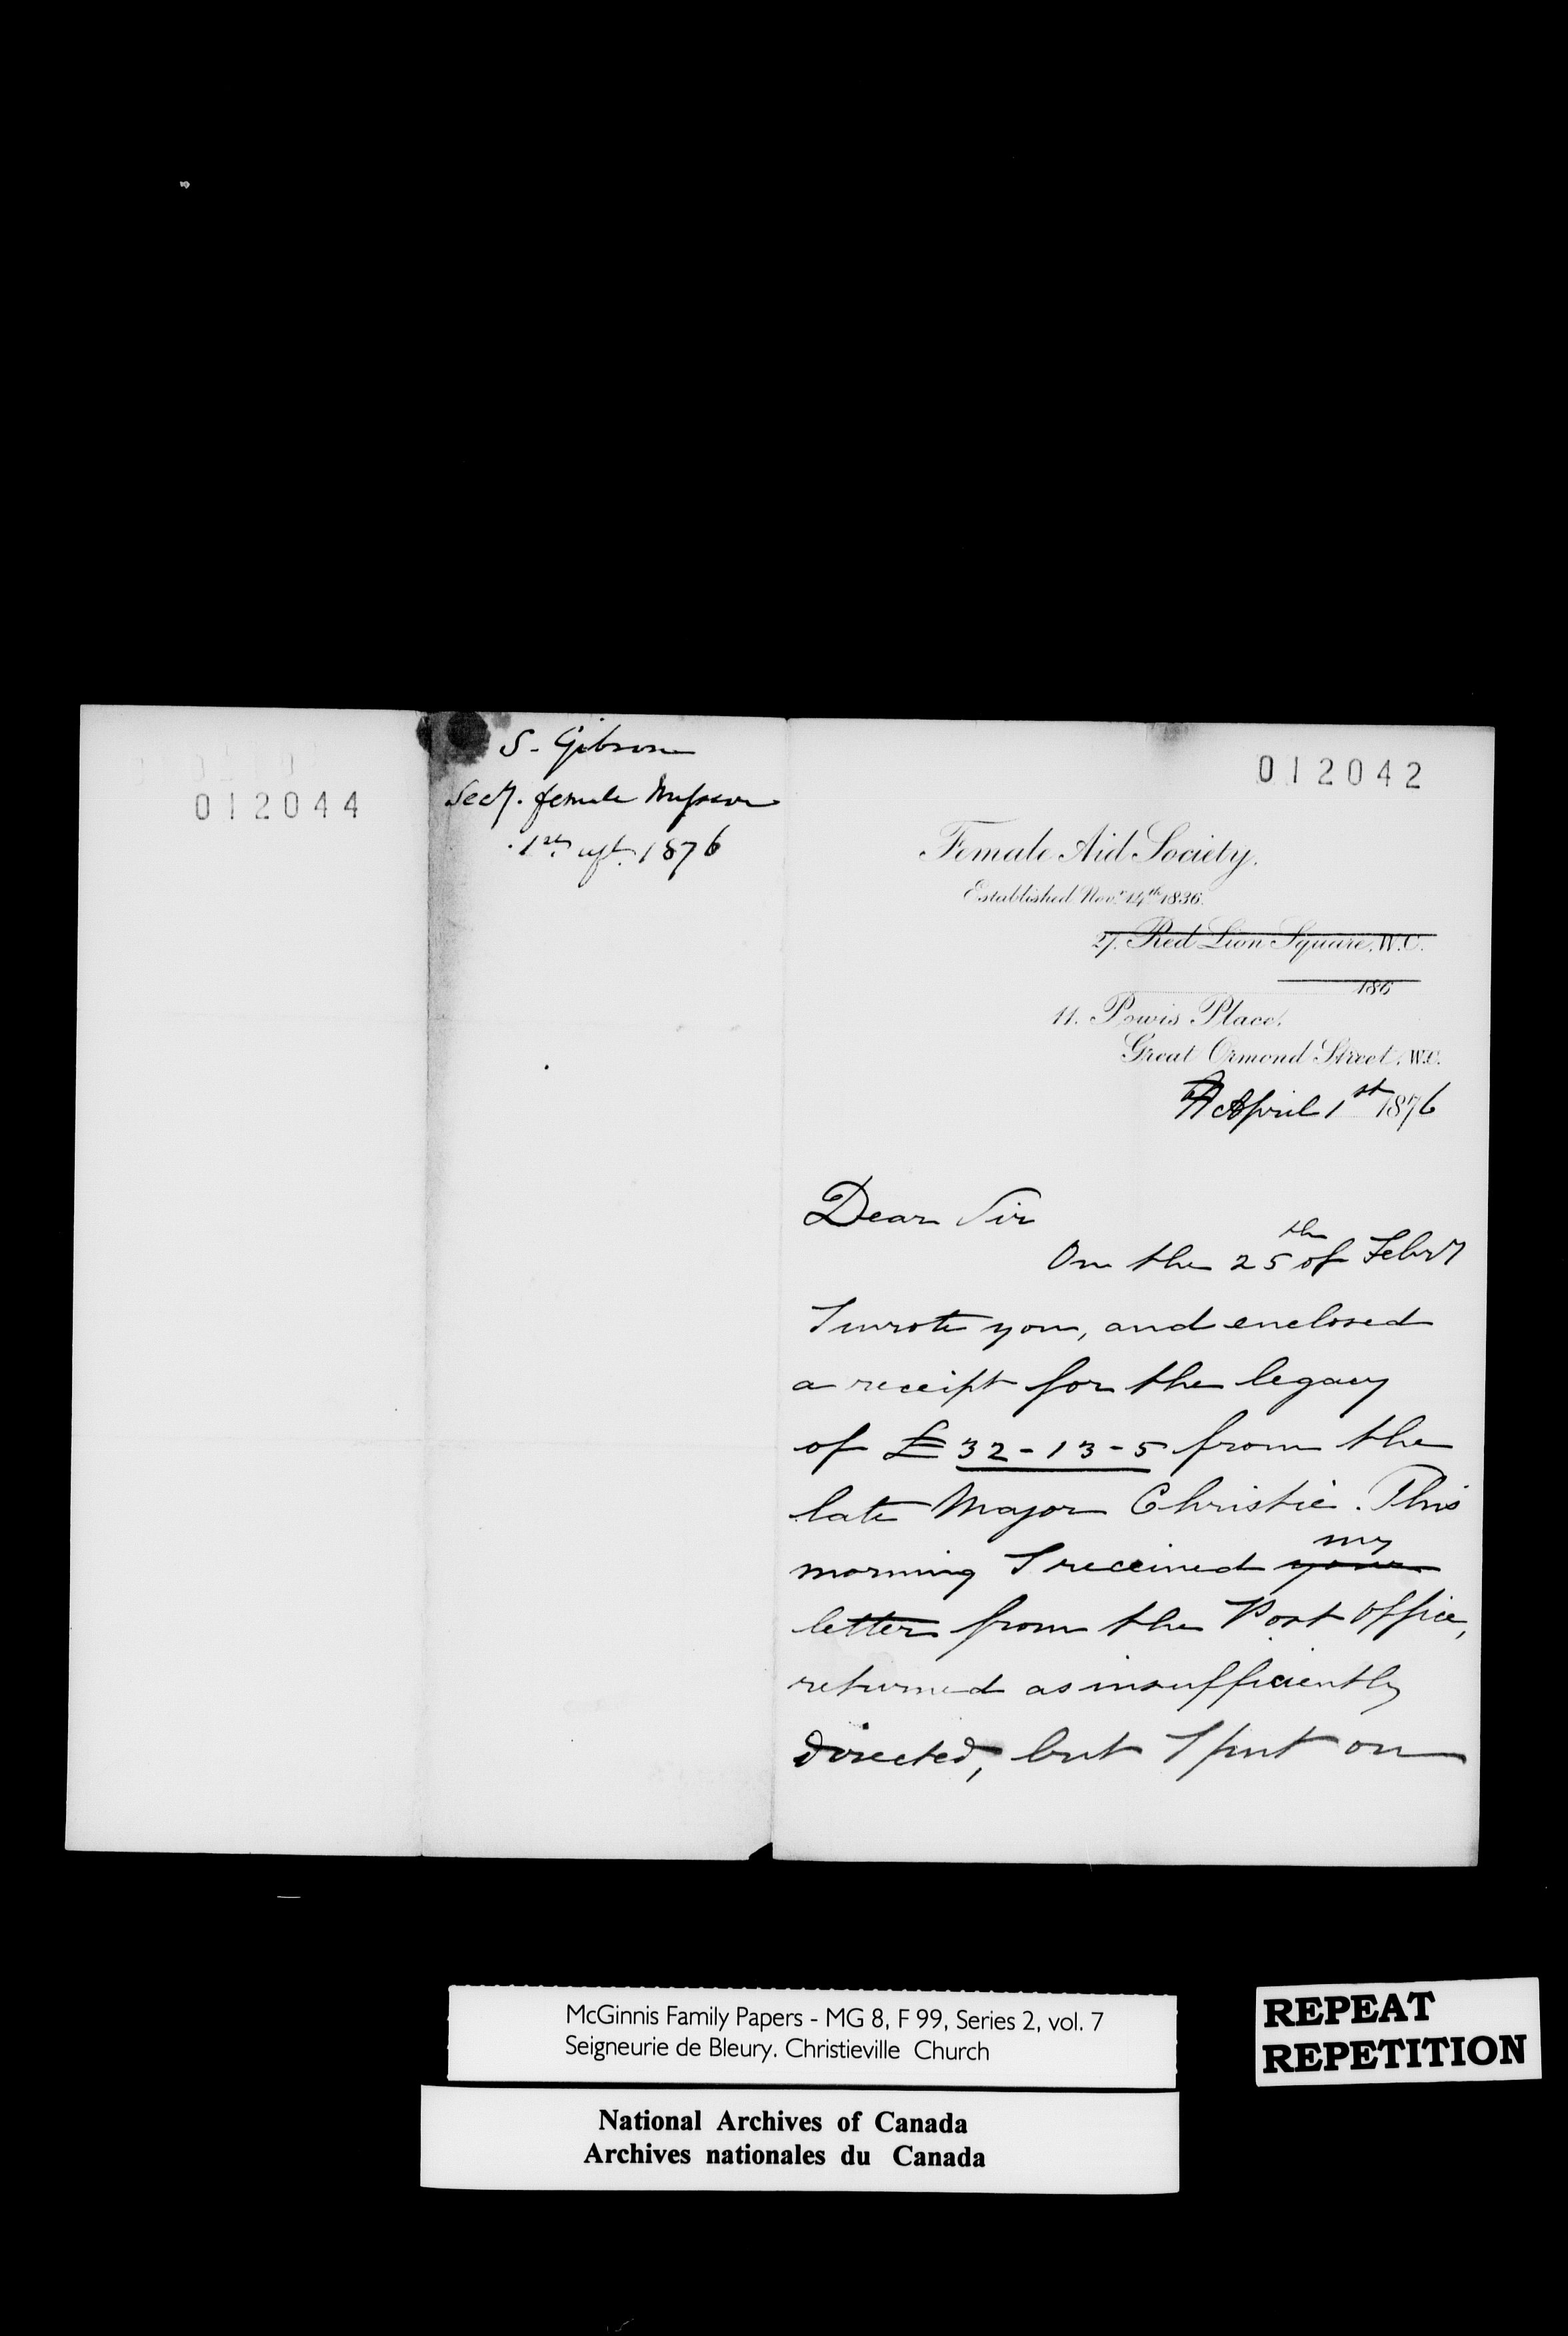 012044
S. Gibson
Secy. female Mission
1st apl. 1876
012042
Female Aid Society.
Established Novr. 14th 1836.
27. Red Lion Square, W.C.
186
11. Powis Place,
Great Ormond Street, W.C.
April 1st 1876
Dear Sir
On the 25th of Febry
I wrote you, and enclosed
a receipt for the legacy
of £32-13-5 from the
late Major Christie. This
morning I received your my
letter from the Post Office,
returned as insufficiently
directed, but I put on
McGinnis Family Papers - MG 8, F 99, Series 2, vol. 7
Seigneurie de Bleury. Christieville Church
REPEAT
REPETITION
National Archives of Canada
Archives nationales du Canada